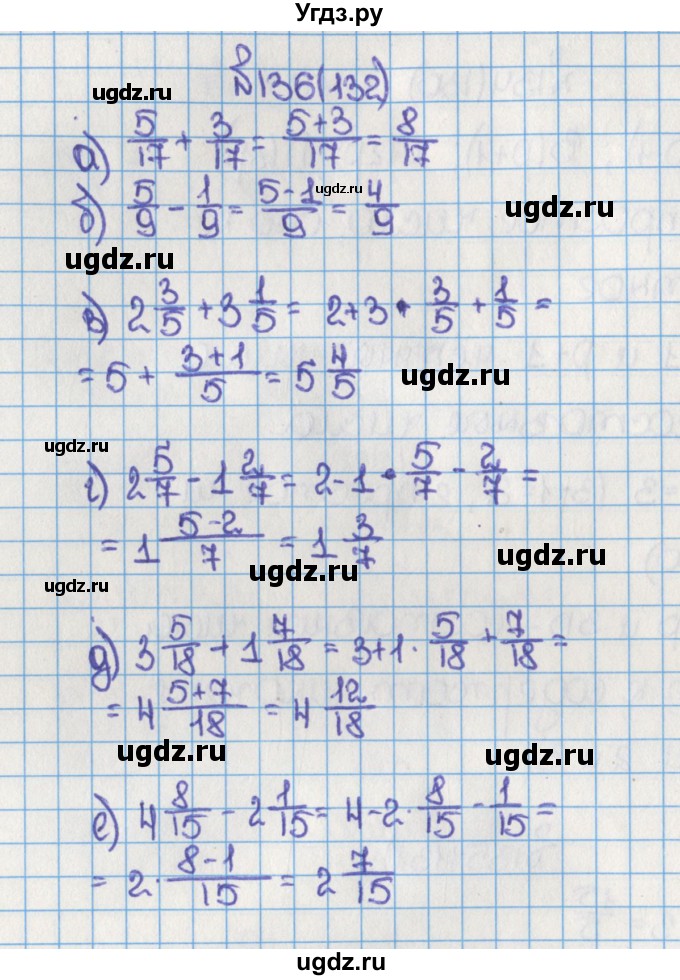 Угдз.ру
№136(132)
ugdz.ru
а) 5/17 + 3/17 = 5+3/17 = 8/17
ugdz.ru
б) 5/9 - 1/9 = 5-1/9 = 4/9
ugdz.ru
ugdz.ru
ugdz.ru
в) 2 3/5 + 3 1/5 = 2+3 · 3/5 + 1/5 =
= 5 + 3+1/5 = 5 4/5
ugdz.ru
ugdz.ru
г) 2 5/7 - 1 2/7 = 2-1 · 5/7 - 2/7 =
= 1 5-2/7 = 1 3/7
ugdz.ru
ugdz.ru
ugdz.ru
д) 3 5/18 + 1 7/18 = 3+1 · 5/18 + 7/18 =
= 4 5+7/18 = 4 12/18
ugdz.ru
ugdz.ru
е) 4 8/15 - 2 1/15 = 4-2 · 8/15 - 1/15 =
= 2 · 8-1/15 = 2 7/15
ugdz.ru